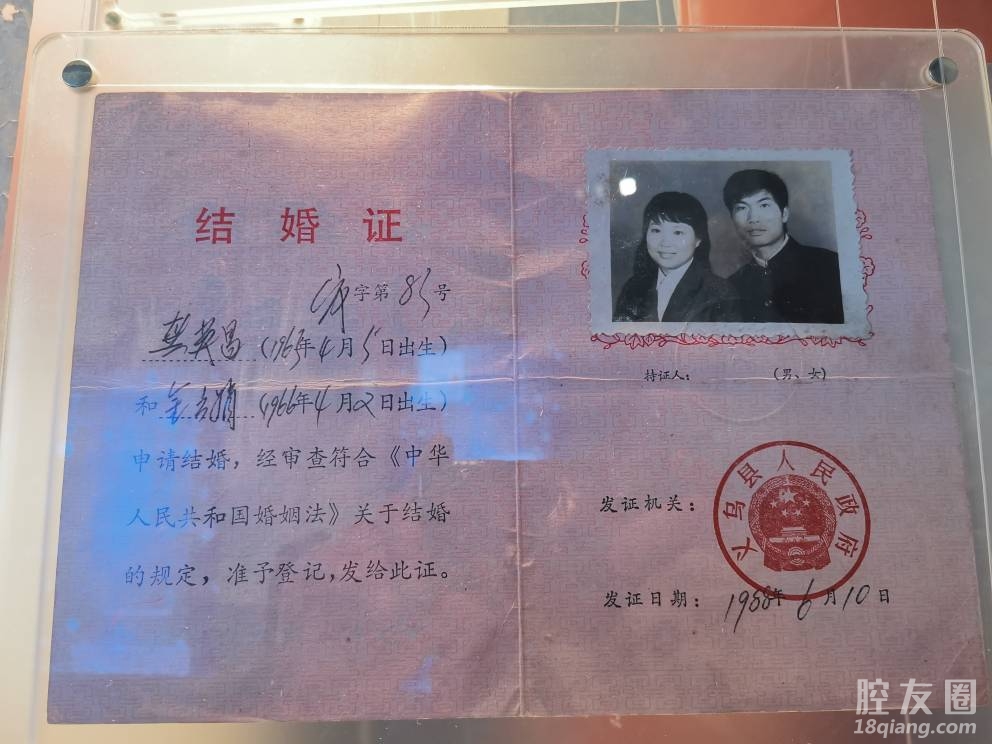 结婚证
字第85号
龚英昌(1965年4月5日出生)
和金(1966年4月2日出生)
申请结婚，经审查符合《中华
人民共和国婚姻法》关于结婚
的规定，准予登记，发给此证。
持证人： (男、女)
发证机关：
义乌县人民政府
发证日期：1988年6月10日
腔友圈
18qiang.com